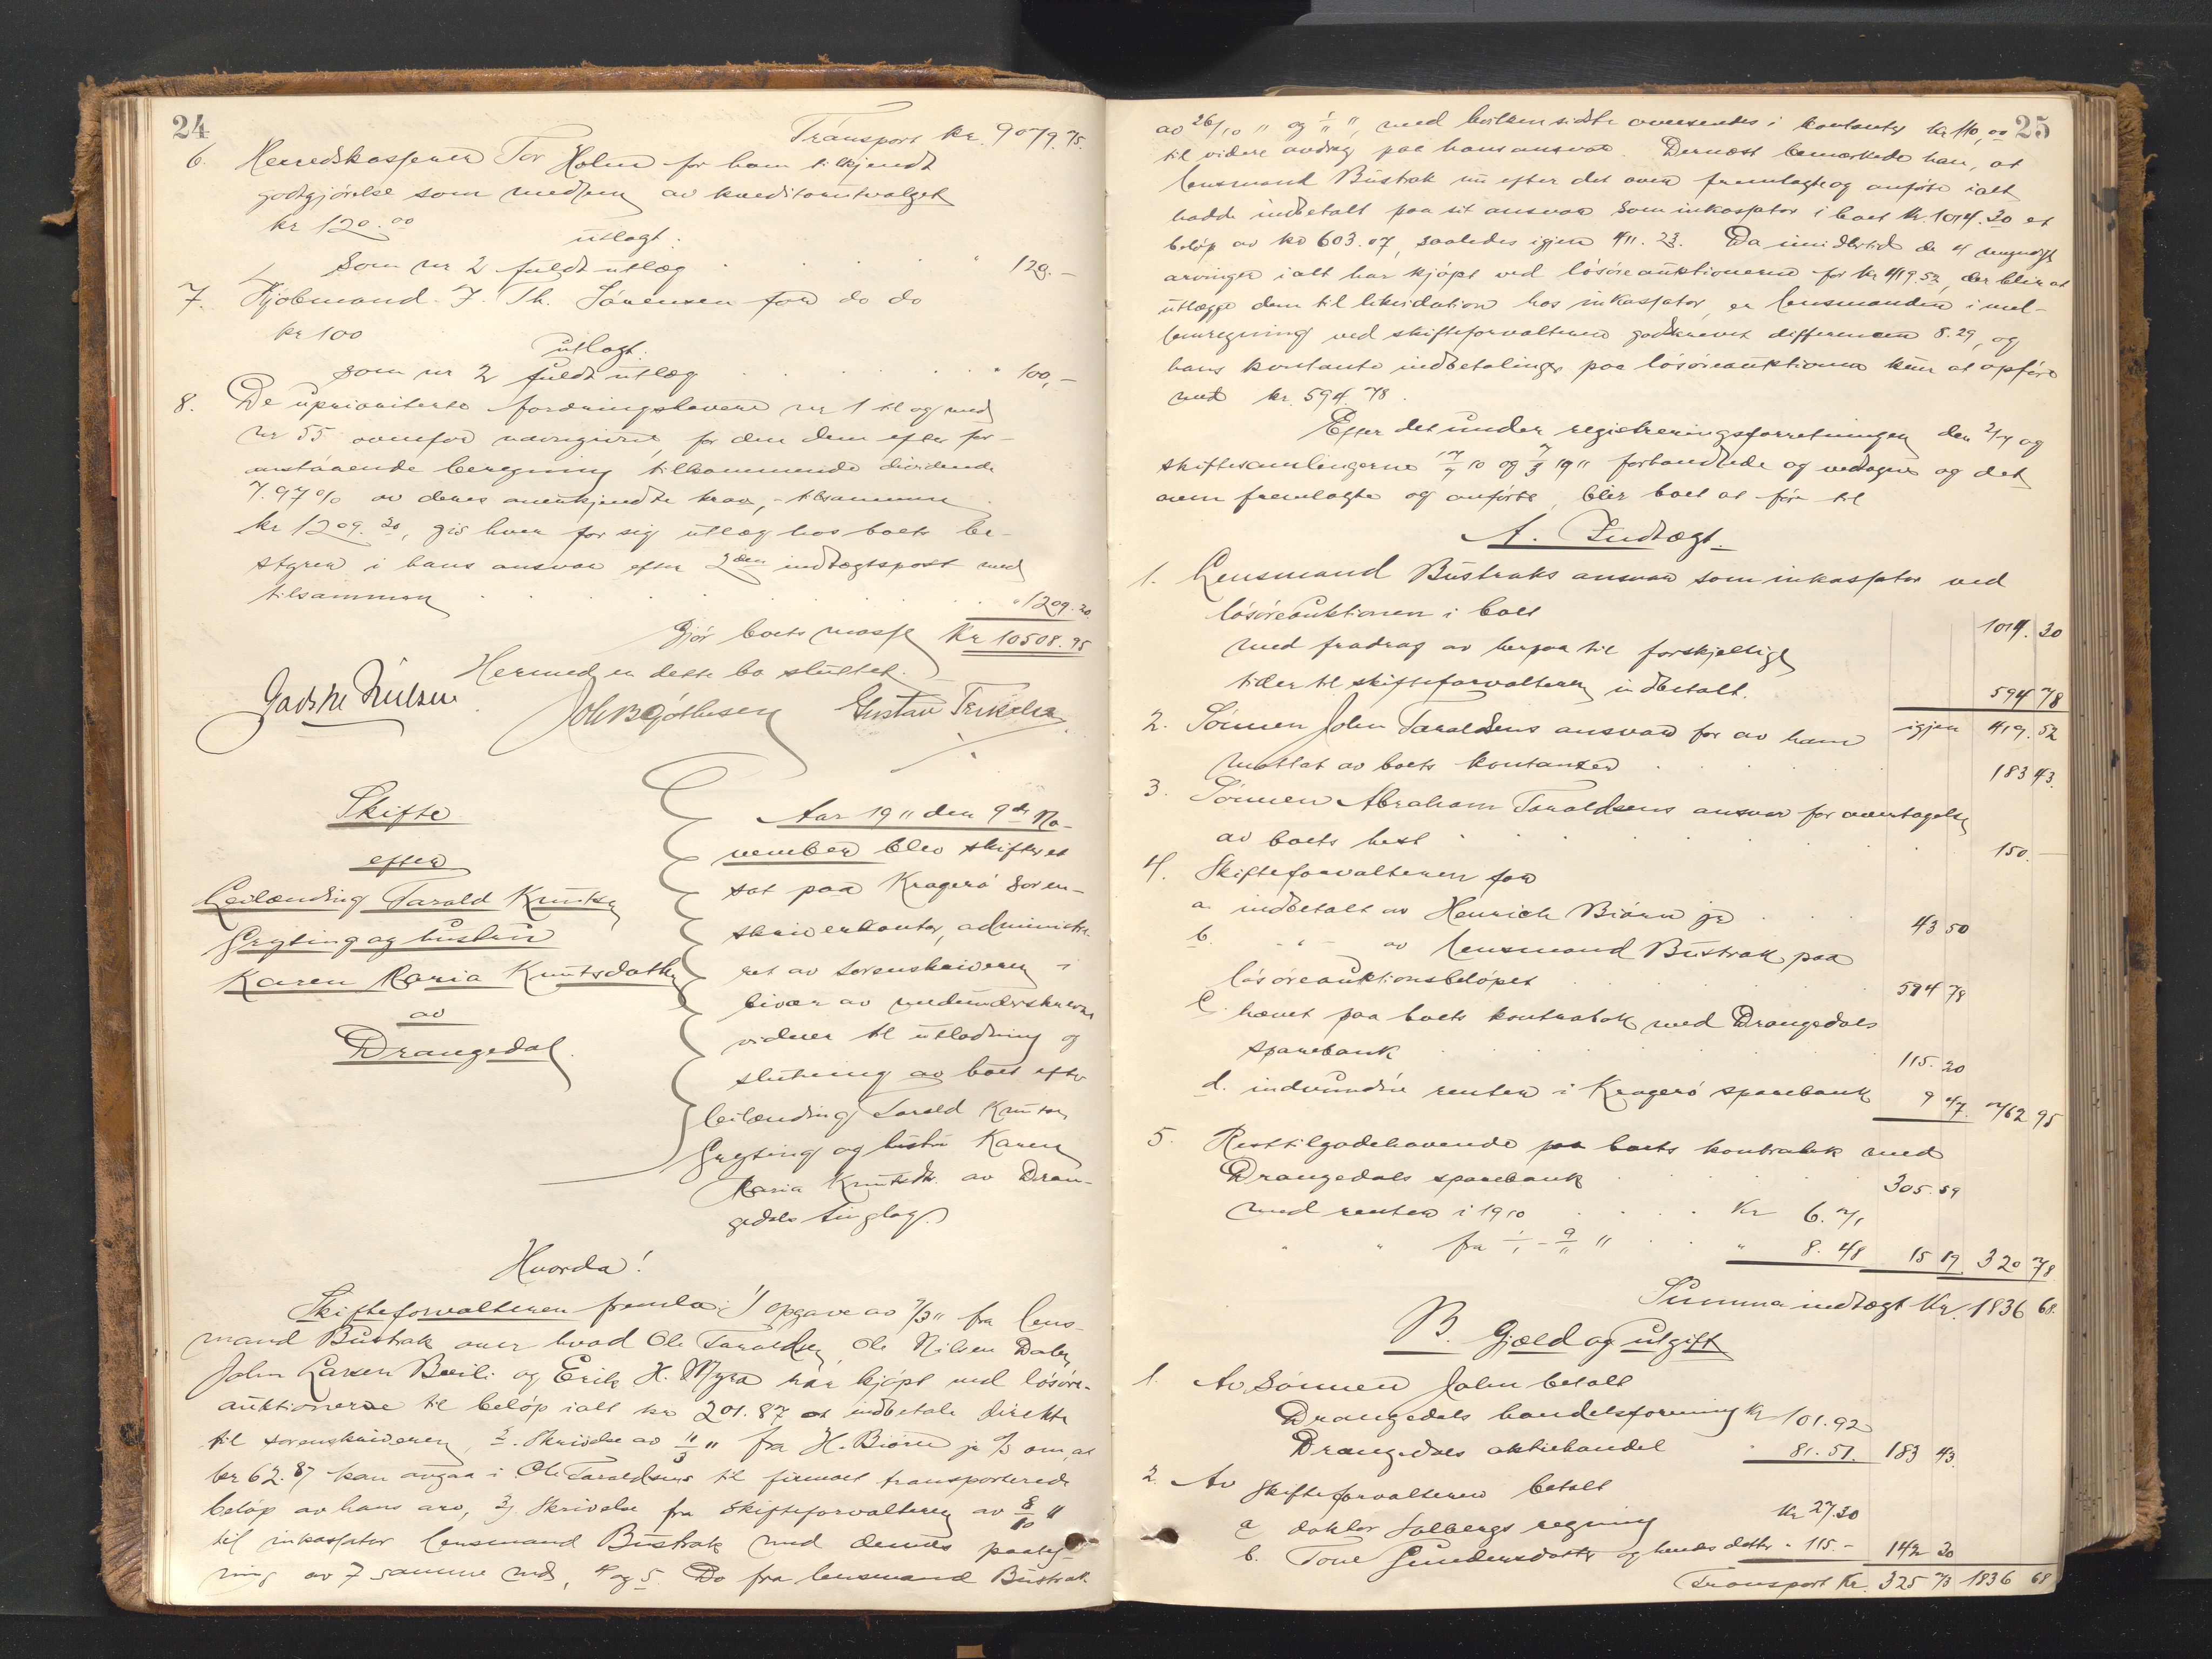 24
Transport kr. 9079.75.
6. Herredskasserer Tor Holm for ham tilkjendt
godtgjörelse som medlem av kreditorutvalget
kr 120.00
utlagt:
Som nr 2 fuldt utlæg " 120.-
7. Kjöbmand J. Th. Sörensen for do do
kr 100
utlagt:
som nr 2 fuldt utlæg " 100,-
8. De uprioriterte fordringshavere nr 1 til og med
nr 55 ovenfor navngivne, for den dem efter for-
anstaaende beregning tilkommende dividende
7.97% av deres anerkjendte krav, - tilsammen
kr 1209.20, gis hver for sig utlæg hos boets be-
styrer i hans ansvar efter 2den indtægtspost med
tilsammen " 1209.20
Gjör boets masse Kr 10508.95
Hermed er dette bo sluttet.
Gustav
Skifte
efter
Leilending Tarald Knutsen
Grysting og hustru
Karen Maria Knutsdatter
av
Drangedal.
Aar 1911 den 9de No-
vember blev skifteret
sat paa Kragerö soren-
skriverkontor, administre-
ret av sorenskriveren i
bivær av medunderskrevne
vidner til utlodning og
slutning av boet efter
leilending Tarald Knutsen
Grysting og hustru Karen
Maria Knutsdtr. av Dran-
gedals tinglag.
Hvorda!
Skifteforvalteren fremla: 1) opgave av 7/3 11 fra lens-
mand Bustrak over hvad Ole Taraldsen, Ole Nilsen Dalen,
John Larsen Bveli og Erik H. Myra har kjöpt ved lösöre-
auktionerne til belöp ialt kr 201.87 at indbetale direkte
til sorenskriveren, 2. Skrivelse av 11/3 11 fra H. Biörn jr om, at
kr 62.87 kan angaa i Ole Taraldsens til firmaet transporterede
belöp av hans arv, 3) Skrivelse fra Skifteforvalteren av 8/10 11
til inkassator lensmand Bustrak med dennes paateg-
ning av 7 samme md, 4 og 5. Do fra lensmand Bustrak
25
av 26/10 11 og 1/11 11, med hvilken sidste oversendes i kontanter kr 110,00
til videre avdrag paa hans ansvar. Dernæst bemerkede han, at
lensmand Bustrak nu efter det oven fremlagte og anförte ialt
hadde indbetalt paa sit ansvar som inkassator i boet kr. 1014.30 et
belöp av kr 603.07, saaledes igjen 411.23. Da imidlertid de 4 umyndige
arvinger ialt har kjöpt ved lösöreauktionerne for kr 419.52, der blir at
utlægge dem til likvidation hos inkassator, er lensmanden i mel-
lemregning ved skifteforvalteren godskrevet differencen 8.29, og
hans kontante indbetalinger paa lösöreauktionen kun at opföre
med kr. 594.78.
Efter det under registreringsforretningen den 2/4 og
skiftesamlingerne 10 og 1911 forhandlede og vedtagne og det
oven fremlagte og anförte, blir boet at före til
A. Indtægt.
1. Lensmand Bustraks ansvar som inkassator ved
lösöreauktionen i boet 1014.30
med fradrag av herpaa til forskjellige
tider til skifteforvalteren indbetalt. 594 78
igjen 419.52
2. Sönnen John Taraldsens ansvar for av ham
mottat av boets kontanter 183 43.
3. Sönnen Abraham Taraldsens ansvar for overtagelse
av boets hest 150.-
4. Skifteforvalteren for
a. indbetalt av Henrich Biörn jr 43 50
b. - " - av lensmand Bustrak paa
lösöreauktionsbelöpet 594 78
c. hævet paa boets kontrabok med Drangedals
sparebank 115.20
d. indvundne renter i Kragerö sparebank 9 47. 762 95
5. Resttilgodehavende paa boets kontrabok med
Drangedals sparebank 305.59
med renter i 1910 Kr 6.71
" " fra 1/1 - 9/11 11 " 8.48 15 19 320 78
Summa indtægt Kr. 1836 68.
B. Gjæld og utgift
1. Av sönnen John betalt
Drangedals handelsforening Kr 101.92
Drangedals aktiehandel " 81.51. 183 43.
2. Av skifteforvalteren betalt
a doktor Solbergs regning Kr 27.30
b. Tone Gundersdatter og hendes datter " 115.- 142 30
Transport Kr. 325 73 1836 68